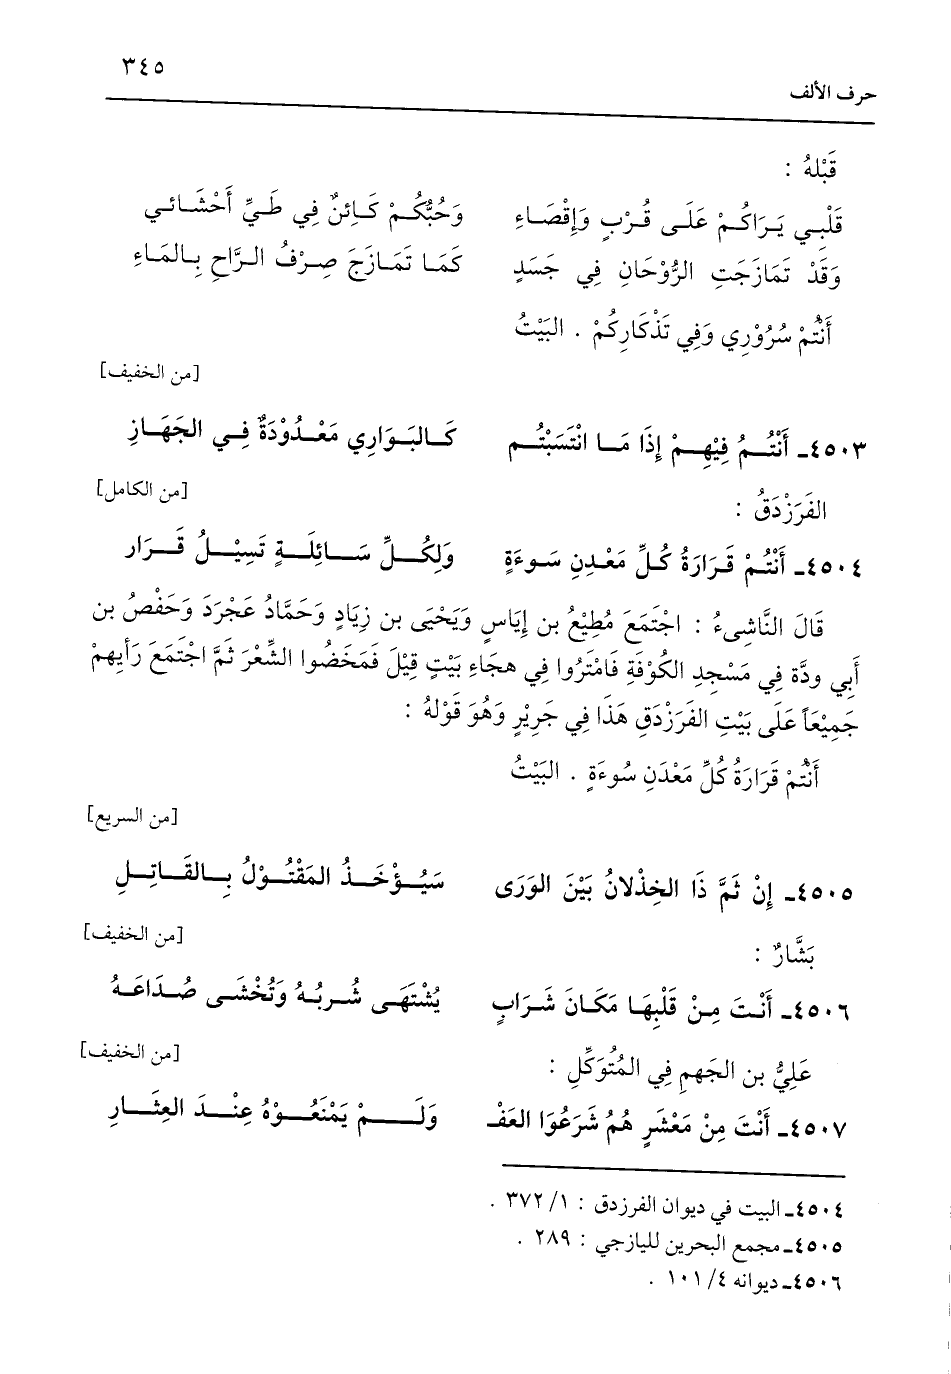 ٣٤٥
حرف الألف
قَبْلهُ :
قَلْبِي يَرَاكُمْ عَلَى قُرْبٍ وَإِقْصَاءِ وَحُبُّكُمْ كَائِنٌ فِي طَيِّ أَحْشَائي
وَقَدْ تَمَازَجَتِ الرُّوْحَانِ فِي جَسَدٍ كَمَا تَمَازَجَ صِرْفُ الرَّاحِ بِالمَاءِ
أَنْتُمْ سُرُوْرِي وَفِي تَذْكَارِكُمْ . البَيْتُ
[من الخفيف]
٤٥٠٣ـ أَنْتُمُ فِيْهِمْ إِذَا مَا انْتَسَبْتُم كَالبَوَارِي مَعْدُوْدَةٌ فِي الجَهَازِ
[من الكامل]
الفَرَزْدَقُ :
٤٥٠٤ـ أَنْتُمْ قَرَارَةُ كُلِّ مَعْدِنِ سَوءَةٍ وَلِكُلِّ سَائِلَةٍ تَسِيْلُ قَرَار
قَالَ النَّاشِىءُ : اجْتَمَعَ مُطِيْعُ بن إِيَاسٍ وَيَحْيَى بن زِيَادٍ وَحَمَّادُ عَجْرَدَ وَحَفْصُ بن
أَبِي ودَّة فِي مَسْجِدِ الكُوْفَةِ فَامْتَرُوا فِي هجَاءِ بَيْتٍ قِيْلَ فَمَخَضُوا الشِّعْرَ ثمَّ اجْتَمَعَ رَأيهمْ
جَمِيْعَاً عَلَى بَيْتِ الفَرَزْدَقِ هَذَا فِي جَرِيْرٍ وَهُوَ قَوْلهُ :
أَنْتُمْ قَرَارَةُ كُلِّ مَعْدَنِ سُوءَةٍ . البَيْتُ
[من السريع]
٤٥٠٥ـ إِنْ ثَمَّ ذَا الخِذْلانُ بَيْنَ الوَرَى سَيُؤْخَذُ المَقْتُوْلُ بِالقَاتِلِ
[من الخفيف]
بَشَّارٌ :
٤٥٠٦ـ أَنْتَ مِنْ قَلْبِهَا مَكَانَ شَرَابٍ يُشْتَهَى شُربُهُ وَتُخْشَى صُدَاعَهُ
[من الخفيف]
عَلِيُّ بن الجَهمِ فِي المُتُوَكِّلِ :
٤٥٠٧ـ أَنْتَ مِنْ مَعْشَرٍ هُمُ شَرَعُوَا العَفْـ وَلَمْ يَمْنَعُوْهُ عِنْدَ العِثَارِ
٤٥٠٤ـ البيت في ديوان الفرزدق : ١/ ٣٧٢ .
٤٥٠٥ـ مجمع البحرين لليازجي : ٢٨٩ .
٤٥٠٦ـ ديوانه ٤/ ١٠١ .